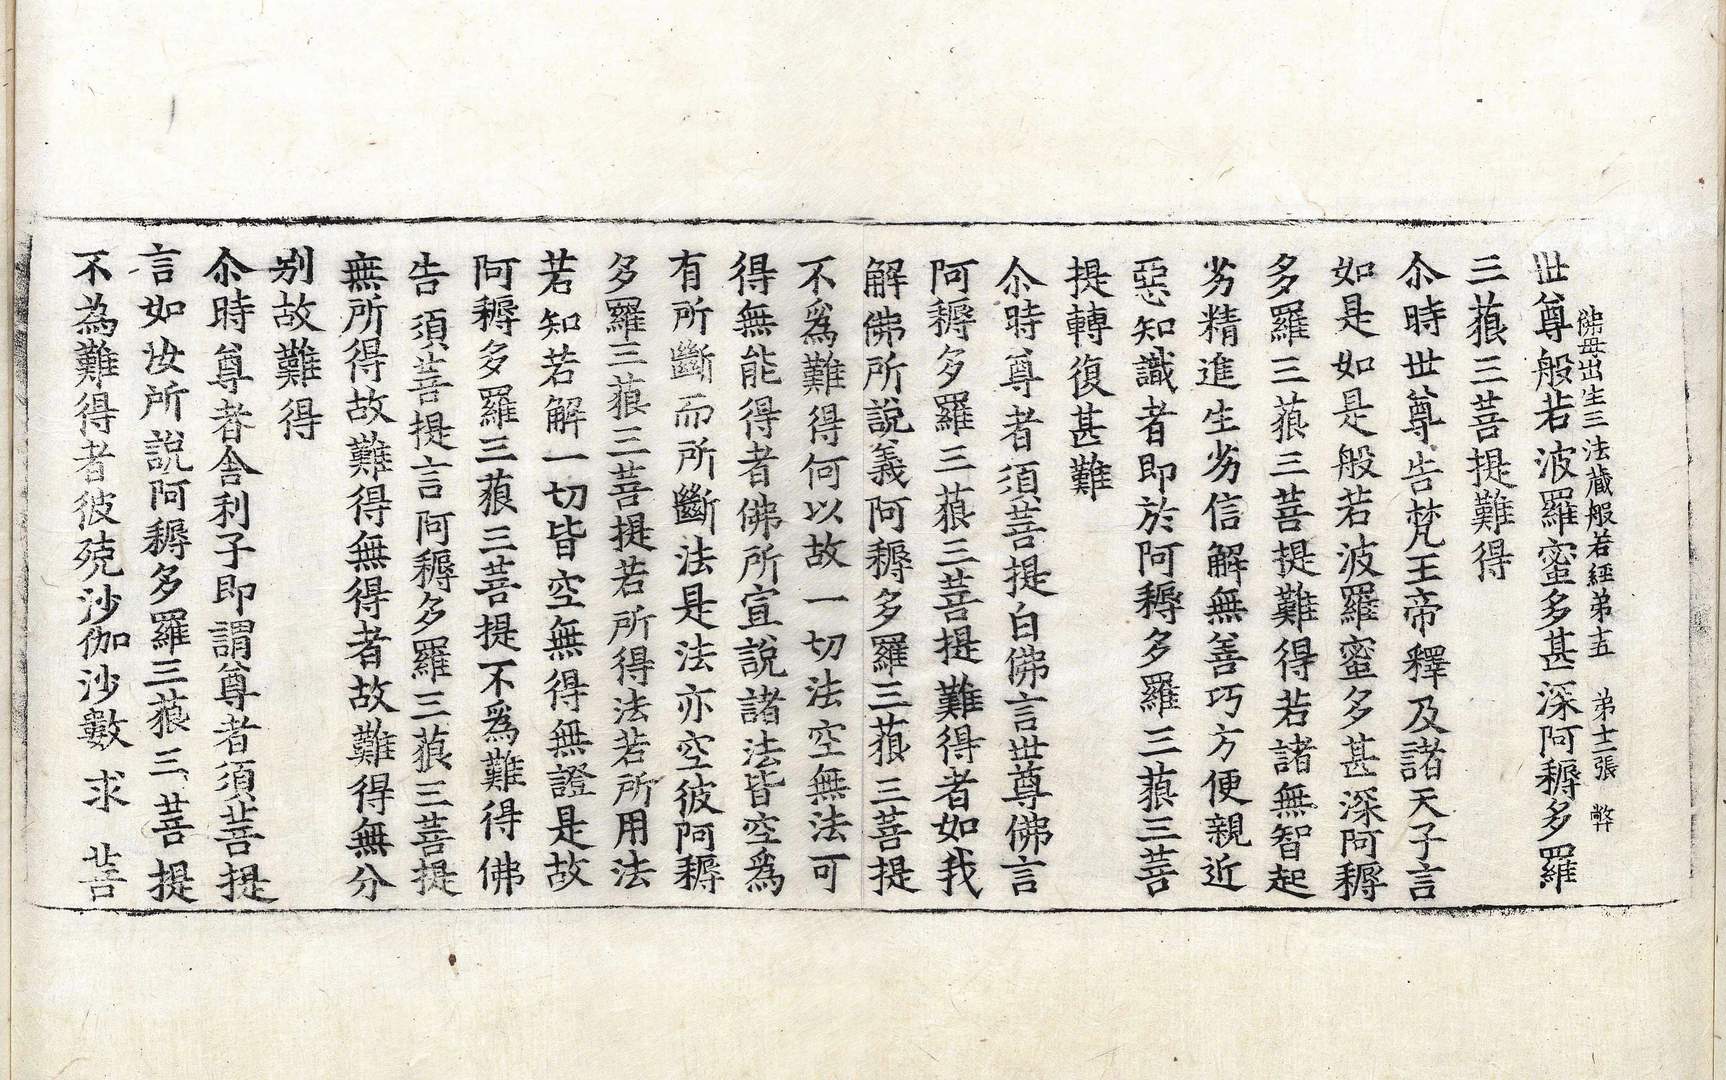 佛母出生三法藏般若經弟十五　弟十二張　弊
世尊般若波羅蜜多甚深阿耨多羅
三藐三菩提難得
尒時世尊告梵王帝釋及諸天子言
如是如是般若波羅蜜多甚深阿耨
多羅三藐三菩提難得若諸無智起
劣精進生劣信解無善巧方便親近
惡知識者即於阿耨多羅三藐三菩
提轉復甚難
尒時尊者須菩提白佛言世尊佛言
阿耨多羅三藐三菩提難得者如我
解佛所說義阿耨多羅三藐三菩提
不爲難得何以故一切法空無法可
得無能得者佛所宣說諸法皆空爲
有所斷而所斷法是法亦空彼阿耨
多羅三藐三菩提若所得法若所用法
若知若解一切皆空無得無證是故
阿耨多羅三藐三菩提不爲難得佛
告須菩提言阿耨多羅三藐三菩提
無所得故難得無得者故難得無分
别故難得
尒時尊者舍利子即謂尊者須菩提
言如汝所說阿耨多羅三藐三菩提
不為難得者彼殑沙伽沙數求菩